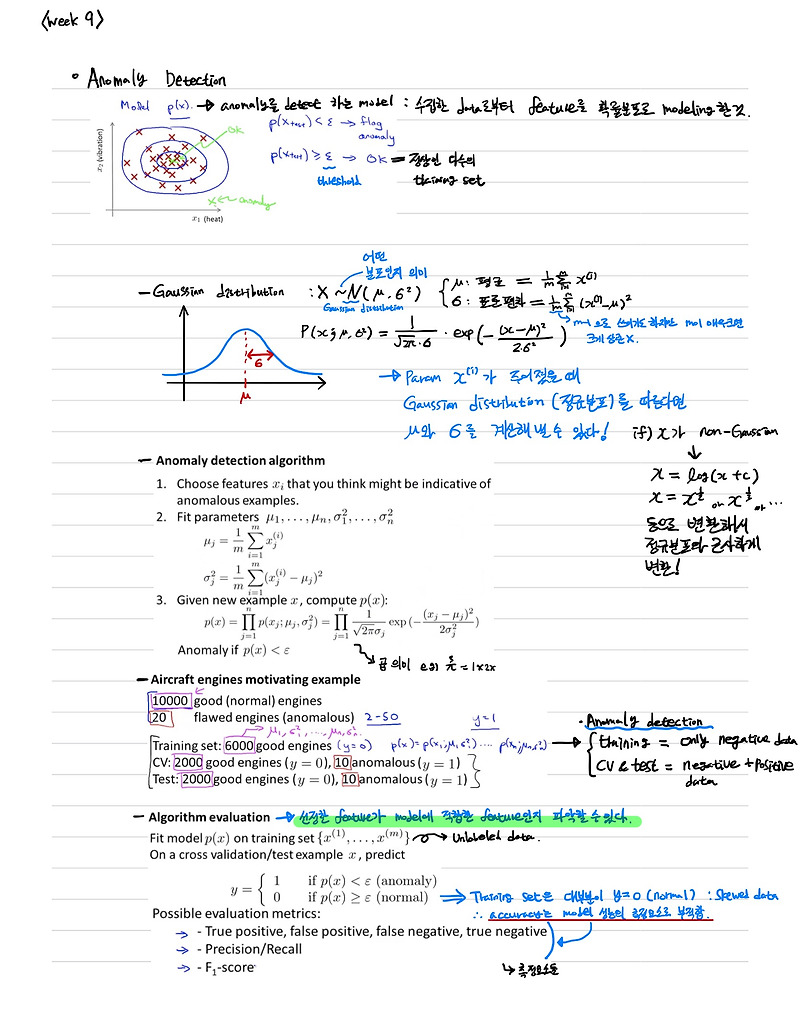 <week 9>
• Anomaly Detection
Model p(x). → anomaly를 detect 하는 model : 수집한 data로부터 feature를 확률분포로 modeling 한 것.
p(x_test) < ε → flag anomaly
OK
p(x_test) ≥ ε → OK = 정상인 다수의 training set
threshold
x₂ (vibration)
x₁ (heat)
anomaly
어떤 분포인지 의미
- Gaussian distribution : X ~ N(μ, σ²)
Gaussian distribution
μ: 평균 = 1/m Σ x⁽ⁱ⁾
σ: 표준편차 = 1/m Σ (x⁽ⁱ⁾-μ)²
P(x; μ, σ²) = 1/(√2π·σ) · exp(-(x-μ)²/2·σ²)
σ
μ
→ Param x⁽ⁱ⁾가 주어졌을 때
Gaussian distribution (정규분포)를 따른다면
μ와 σ를 계산해낼 수 있다!
if) x가 non-Gaussian
↓
x = log(x+c)
x = x^½ or x^⅓ or ...
등으로 변환해서
정규분포와 근사하게
변환!
- Anomaly detection algorithm
1. Choose features xᵢ that you think might be indicative of
anomalous examples.
2. Fit parameters μ₁, . . . , μₙ, σ₁², . . . , σₙ²
μⱼ = 1/m Σᵢ₌₁ᵐ xⱼ⁽ⁱ⁾
σⱼ² = 1/m Σᵢ₌₁ᵐ (xⱼ⁽ⁱ⁾ − μⱼ)²
3. Given new example x, compute p(x):
p(x) = ∏ⱼ₌₁ⁿ p(xⱼ; μⱼ, σⱼ²) = ∏ⱼ₌₁ⁿ 1/(√2πσⱼ) exp(−(xⱼ−μⱼ)²/2σⱼ²)
Anomaly if p(x) < ε
곱 의미
= 1x2x
- Aircraft engines motivating example
10000 good (normal) engines
20 flawed engines (anomalous) 2-50 y=1
μ₁, σ₁², ..., μₙ, σₙ²
Training set: 6000 good engines (y=0) p(x) = p(x₁; μ₁, σ₁²) ... p(xₙ; μₙ, σₙ²)
CV: 2000 good engines (y = 0), 10 anomalous (y = 1)
Test: 2000 good engines (y = 0), 10 anomalous (y = 1)
- Anomaly detection
training = only negative data
CV & test = negative + positive data
- Algorithm evaluation → 선정한 feature가 model에 적합한 feature인지 파악할 수 있다.
Fit model p(x) on training set {x⁽¹⁾, . . . , x⁽ᵐ⁾} → Unlabeled data.
On a cross validation/test example x, predict
y = { 1 if p(x) < ε (anomaly)
0 if p(x) ≥ ε (normal)
⇒ Training set은 대부분이 y=0 (normal) : Skewed data
∴ accuracy는 model 성능의 측정요소로 부적합.
Possible evaluation metrics:
→ - True positive, false positive, false negative, true negative
→ - Precision/Recall
→ - F₁-score
↳ 측정요소들